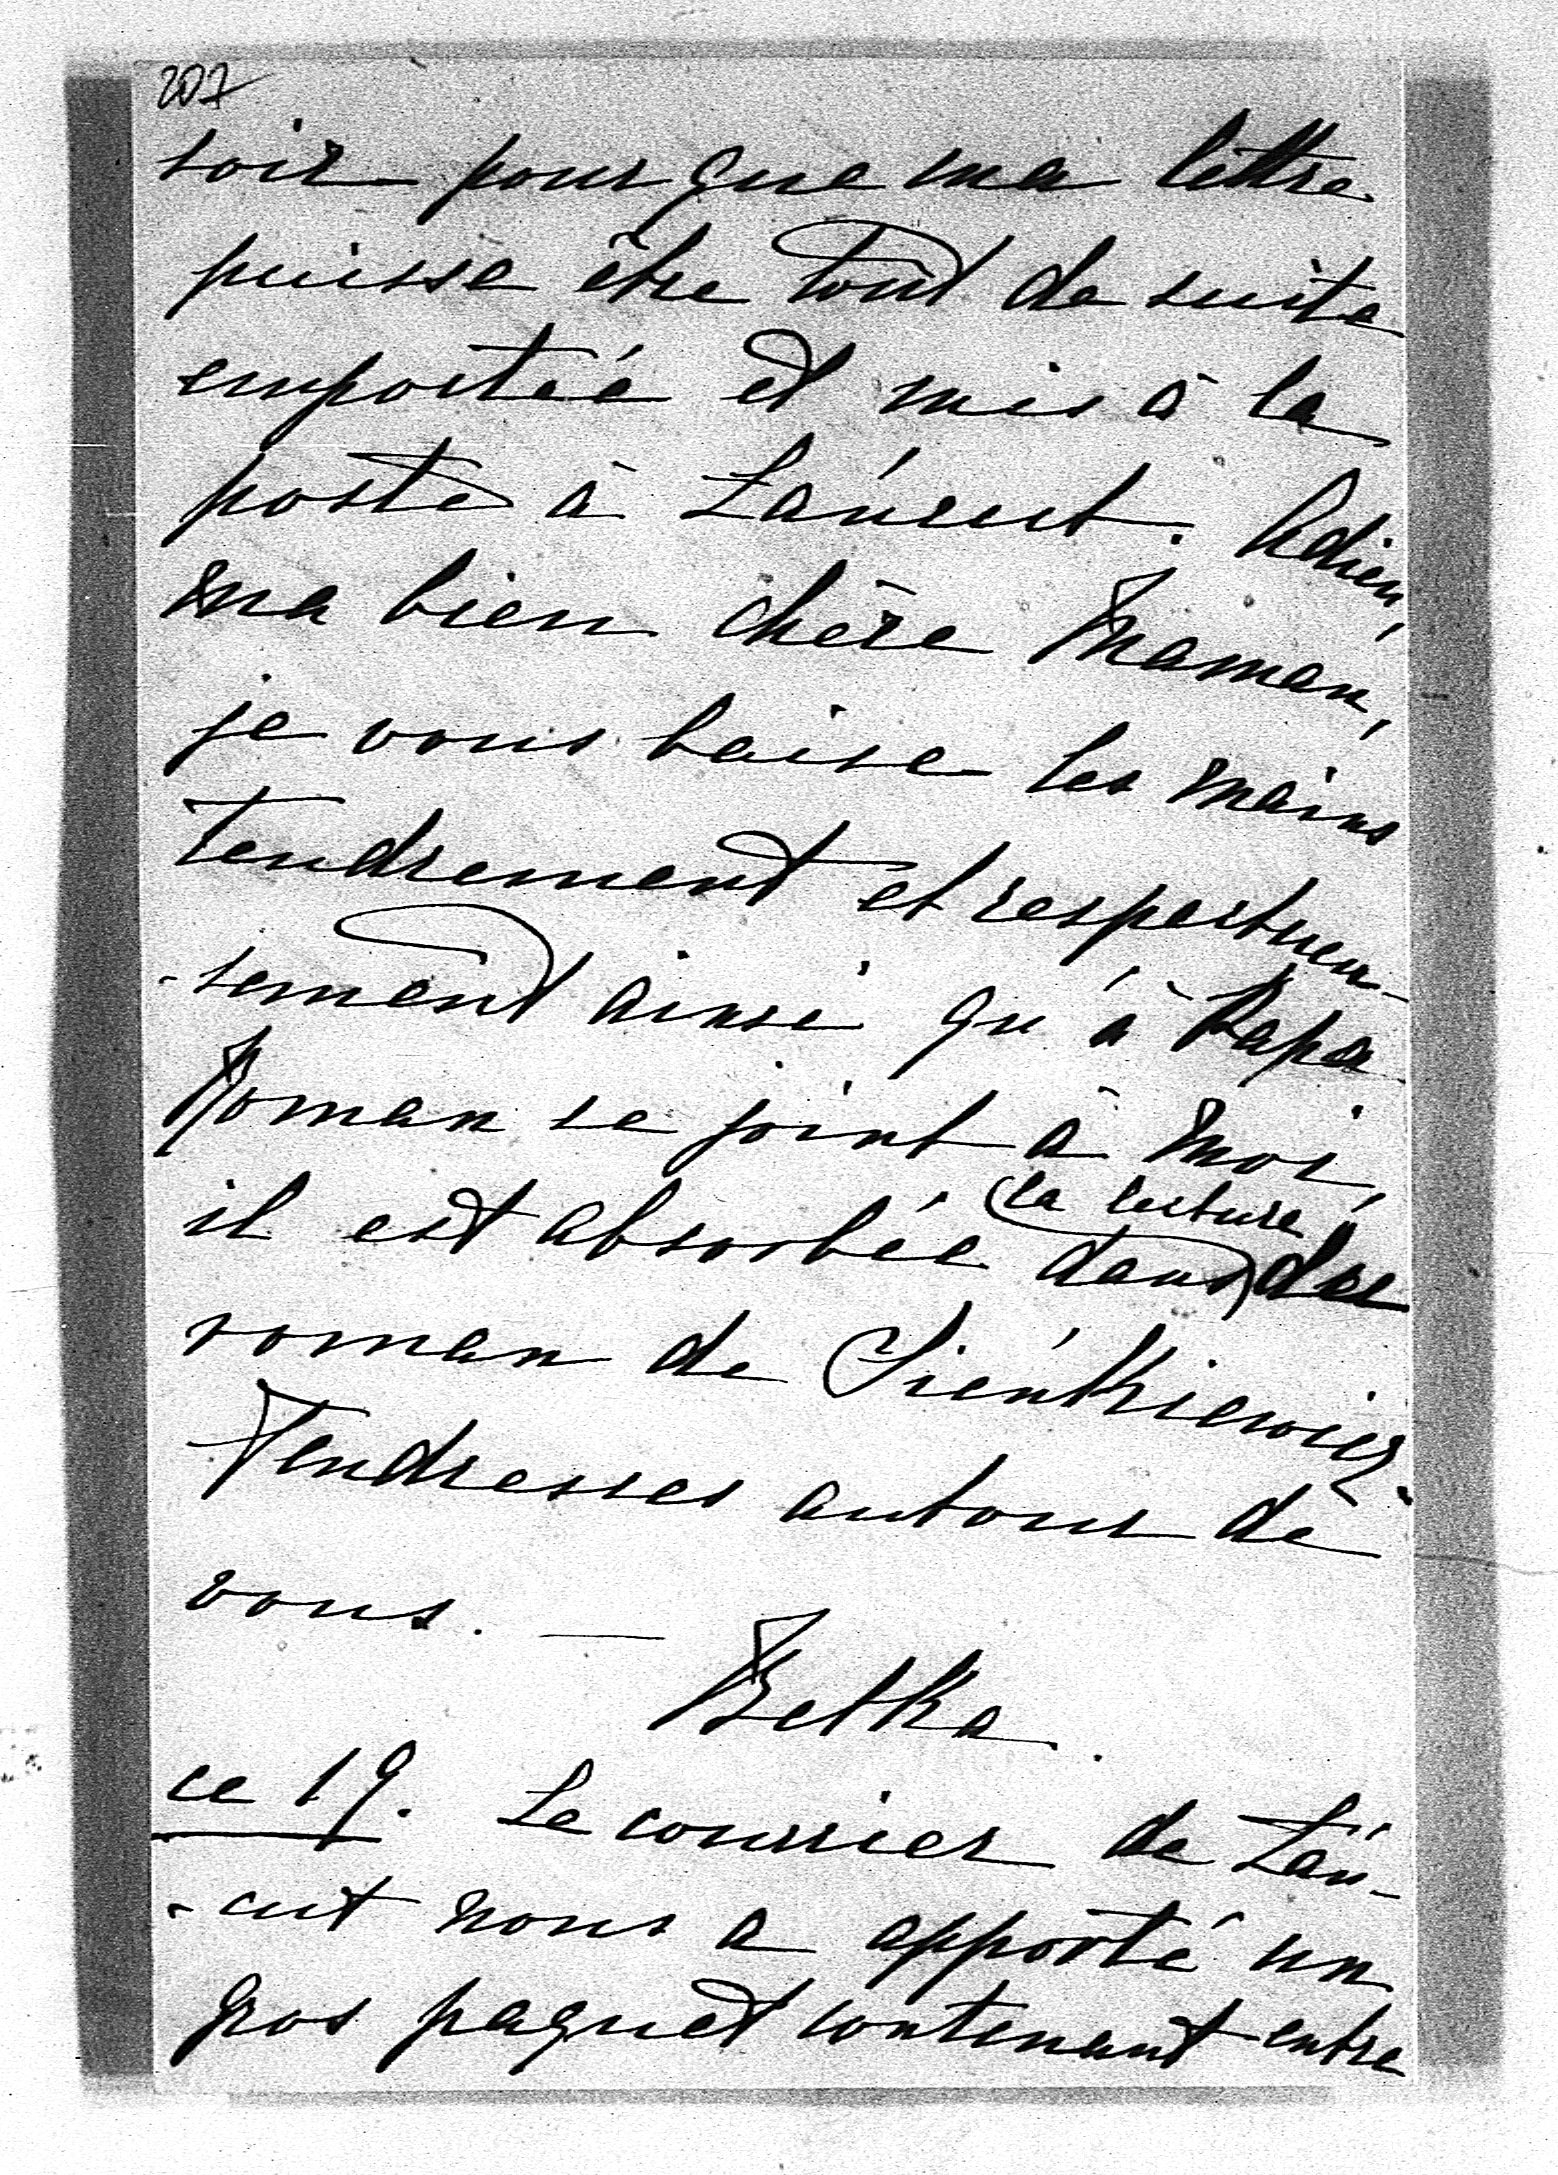 207
soir pour que ma lettre
puisse être tout de suite
emportée et mis à la
poste à Łańcut. Adieu,
ma bien chère Maman,
je vous baise les mains
tendrement et respectueu-
-sement ainsi qu'à Papa
Roman se joint à moi,
il est absorbée dans la lecture de
roman de Sienkiewicz.
Tendresses autour de
vous. —
Betka.
ce 19. Le courrier de Łań-
-cut nous a apporté un
gros paquet contenant entre